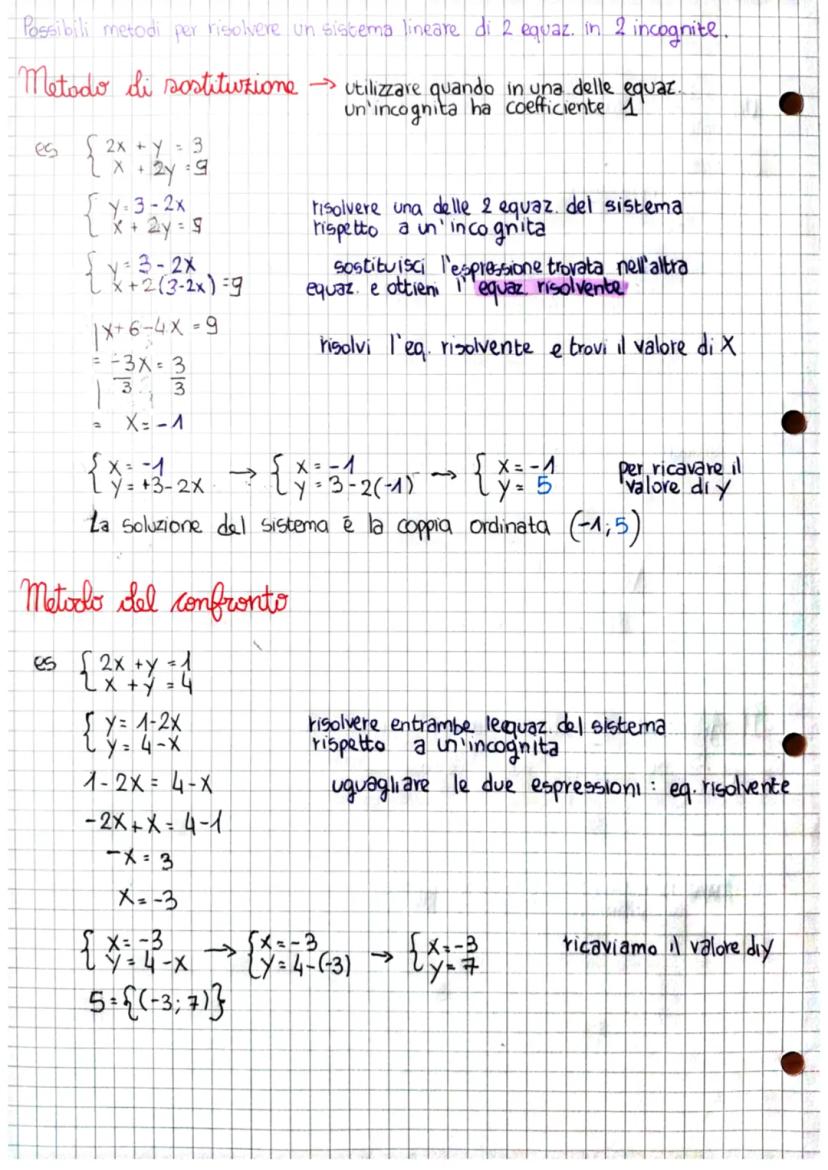 Possibili metodi per risolvere un sistema lineare di 2 equaz. in 2 incognite.
Metodo di sostituzione → utilizzare quando in una delle equaz.
un'incognita ha coefficiente 1
es { 2x + y = 3
x + 2y = 9
{ y = 3 - 2x
x + 2y = 9
risolvere una delle 2 equaz. del sistema
rispetto a un'incognita
{ y = 3 - 2x
x + 2(3-2x) = 9
sostituisci l'espressione trovata nell'altra
equaz. e ottieni l'equaz. risolvente
x + 6 - 4x = 9
= -3x = 3
3 3
= x = -1
risolvi l'eq. risolvente e trovi il valore di x
{ x = -1 → { x = -1 → { x = -1
y = +3-2x y = 3-2(-1) y = 5
per ricavare il
valore di y
La soluzione del sistema è la coppia ordinata (-1; 5)
Metodo del confronto
es { 2x + y = 1
x + y = 4
{ y = 1-2x
y = 4-x
risolvere entrambe le equaz. del sistema
rispetto a un'incognita
1 - 2x = 4 - x
uguagliare le due espressioni : eq. risolvente
-2x + x = 4-1
-x = 3
x = -3
{ x = -3 → { x = -3 → { x = -3
y = 4-x y = 4-(-3) y = 7
ricaviamo il valore di y
S = {(-3; 7)}